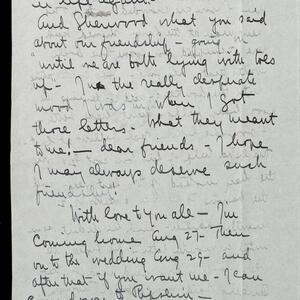 in life again.
And Sherwood what you said
about our friendship - going on
until we are both lying with toes
up - In the really desperate
mood I was in when I got
those letters - What they meant
to me! - dear friends - I hope
I may always deserve such
friendship!
With love to you all - I'm
coming home Aug 27 - Then
on to the wedding Aug 29 - and
after that if you want me - I can